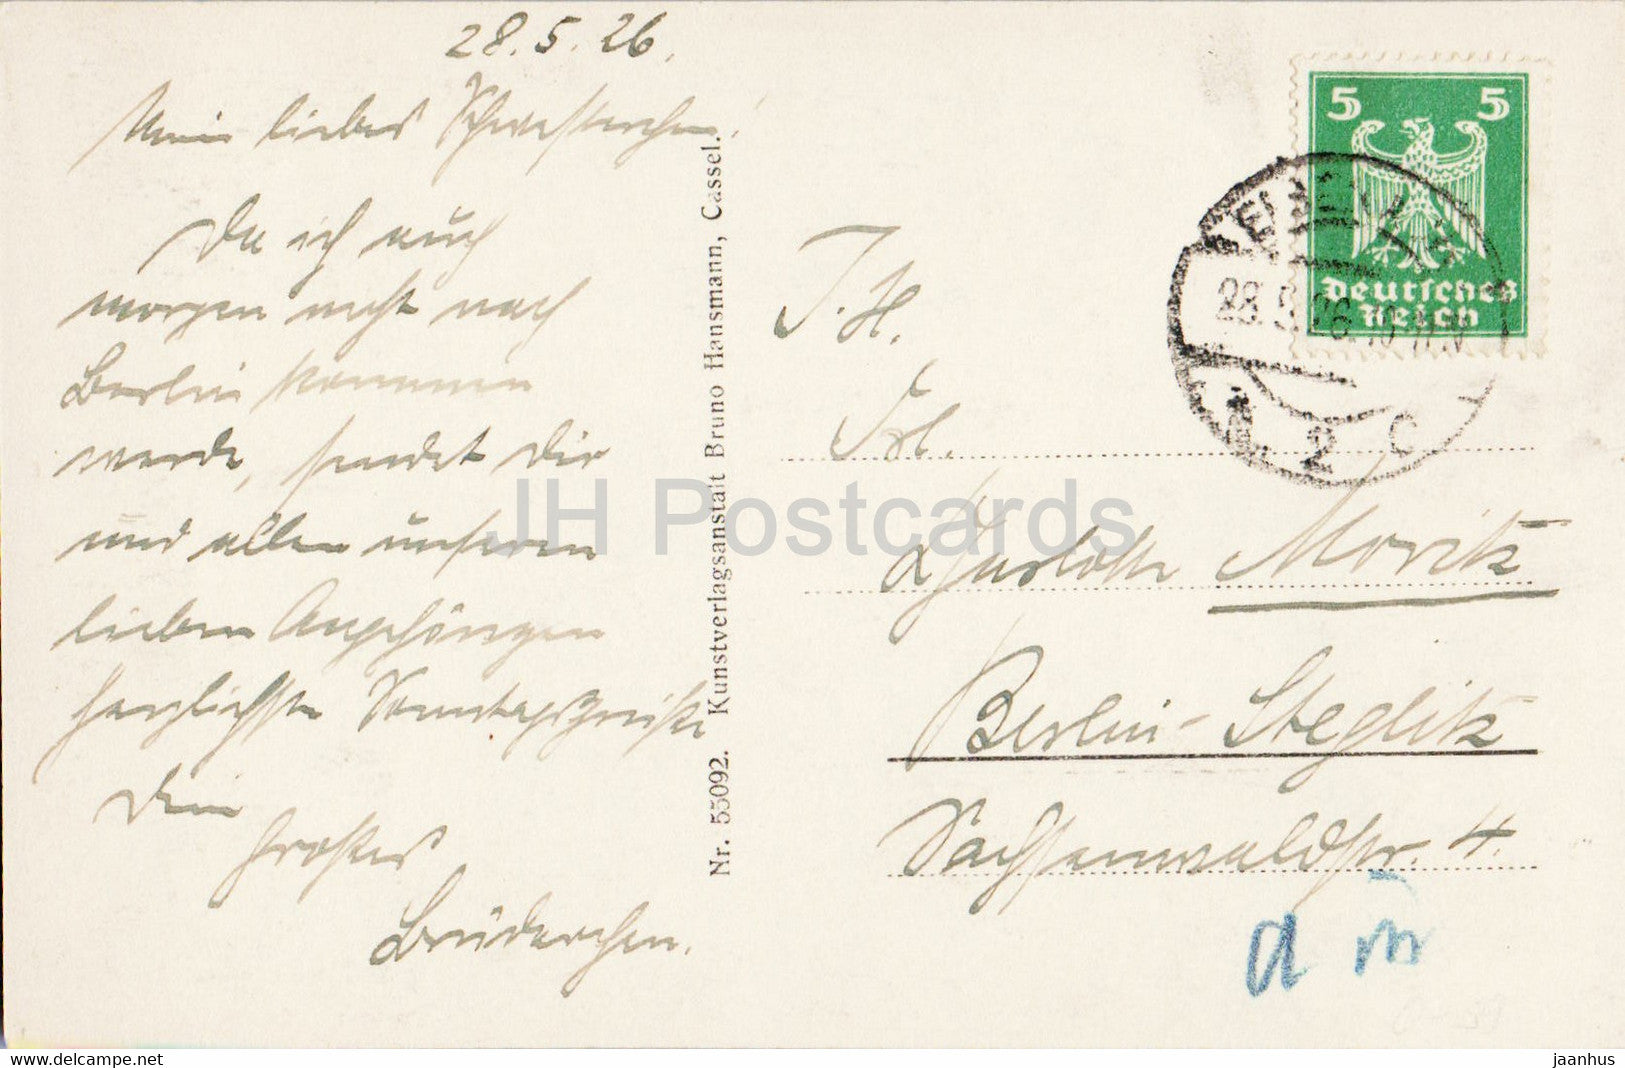 28.5.26.
Mein liebes Schwesterchen!
Da ich auch
morgen nicht nach
Berlin kommen
werde, sendet Dir
und allen unseren
lieben Angehörigen
herzlichste Sonntagsgrüße
Dein
großes
Brüderchen.
Nr. 55092. Kunstverlagsanstalt Bruno Hansmann, Cassel.
5 5
Deutsches
Reich
28.5.26.
2 c
Frl.
Charlotte Moritz
Berlin-Steglitz
Sachsenwaldstr. 4.
JH Postcards
delcampe.net
jaanhus